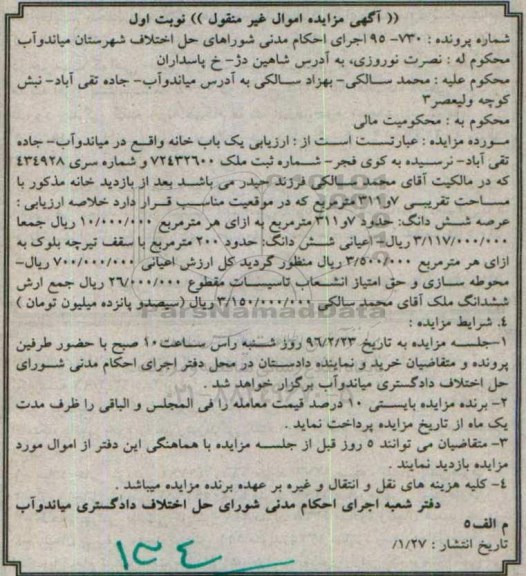 (( آگهی مزایده اموال غیر منقول )) نوبت اول
شماره پرونده : ۷۳۰- ۹۵ اجرای احکام مدنی شوراهای حل اختلاف شهرستان میاندوآب
محکوم له : نصرت نوروزی، به آدرس شاهین دژ- خ پاسداران
محکوم علیه : محمد سالکی- بهزاد سالکی به آدرس میاندوآب- جاده تقی آباد- نبش
کوچه ولیعصر۳
محکوم به : محکومیت مالی
مورده مزایده : عبارتست است از : ارزیابی یک باب خانه واقع در میاندوآب- جاده
تقی آباد- نرسیده به کوی فجر- شماره ثبت ملک ۷۲۴۳۲۶۰۰ و شماره سری ۴۳۴۹۲۸
که در مالکیت آقای محمد سالکی فرزند حیدر می باشد بعد از بازدید خانه مذکور با
مساحت تقریبی ۳۱۱٫۷مترمربع که در موقعیت مناسب قرار دارد خلاصه ارزیابی :
عرصه شش دانگ: حدود ۳۱۱٫۷ مترمربع به ازای هر مترمربع ۱۰/۰۰۰/۰۰۰ ریال جمعا
۳/۱۱۷/۰۰۰/۰۰۰ ریال- اعیانی شش دانگ: حدود ۲۰۰ مترمربع با سقف تیرچه بلوک به
ازای هر مترمربع ۳/۵۰۰/۰۰۰ ریال منظور گردید کل ارزش اعیانی ۷۰۰/۰۰۰/۰۰۰ ریال-
محوطه سازی و حق امتیاز انشعاب تاسیسات مقطوع ۲۶/۰۰۰/۰۰۰ ریال جمع ارش
ششدانگ ملک آقای محمد سالکی ۳/۱۵۰/۰۰۰/۰۰۰ ریال (سیصدو پانزده میلیون تومان )
ParsNamadData
٤. شرایط مزایده :
۱-جلسه مزایده به تاریخ ۹۶/۲/۲۳ روز شنبه راس ساعت ۱۰ صبح با حضور طرفین
پرونده و متقاضیان خرید و نماینده دادستان در محل دفتر اجرای احکام مدنی شورای
حل اختلاف دادگستری میاندوآب برگزار خواهد شد .
۲- برنده مزایده بایستی ۱۰ درصد قیمت معامله را فی المجلس و الباقی را ظرف مدت
یک ماه از تاریخ مزایده پرداخت نماید .
۳- متقاضیان می توانند ۵ روز قبل از جلسه مزایده با هماهنگی این دفتر از اموال مورد
مزایده بازدید نمایند .
٤- کلیه هزینه های نقل و انتقال و غیره بر عهده برنده مزایده میباشد .
دفتر شعبه اجرای احکام مدنی شورای حل اختلاف دادگستری میاندوآب
م الف۵
تاریخ انتشار : ۱/۲۷/
۱۳٤